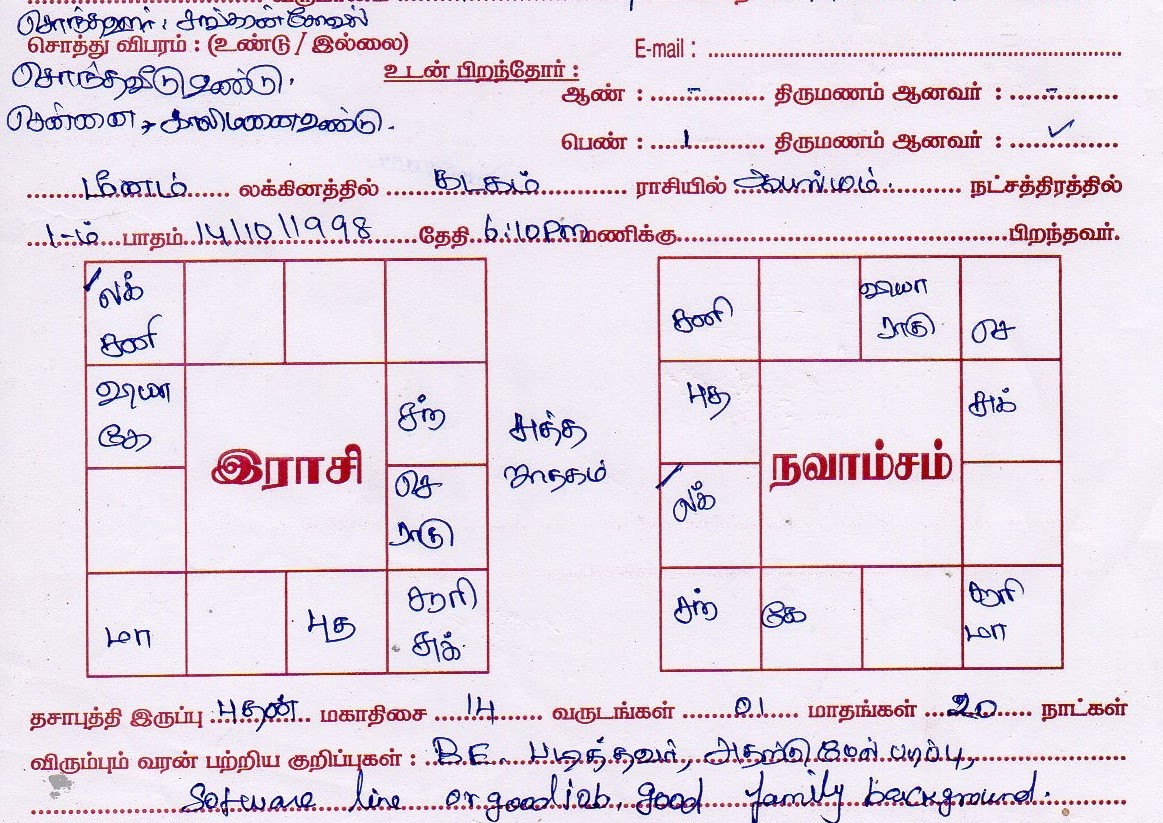 சொந்தஊர் : சங்கரன்கோவில்
சொத்து விபரம் : (உண்டு / இல்லை)
E-mail :
சொந்தவீடு உண்டு.
உடன் பிறந்தோர் :
ஆண் : - திருமணம் ஆனவர் : -
சென்னை காலிமனை உண்டு.
பெண் : 1 திருமணம் ஆனவர் : ✓
மீனம் லக்கினத்தில் கடகம் ராசியில் ஆயில்யம். நட்சத்திரத்தில்
1-ம் பாதம் 14/10/1998 தேதி 6:10 PM மணிக்கு பிறந்தவர்.
லக்
சனி
வியா
கே
சந்
செ
ராகு
மா
புத
சூரி
சுக்
இராசி
சுத்த
ஜாதகம்
சனி
வியா
ராகு
செ
புத
சுக்
லக்
சந்
கே
சூரி
மா
நவாம்சம்
தசாபுத்தி இருப்பு புதன் மகாதிசை 14 வருடங்கள் 01 மாதங்கள் 20 நாட்கள்
விரும்பும் வரன் பற்றிய குறிப்புகள் : B.E. படித்தவர், அதற்கு மேல் படிப்பு,
Software line or good job, good family background.